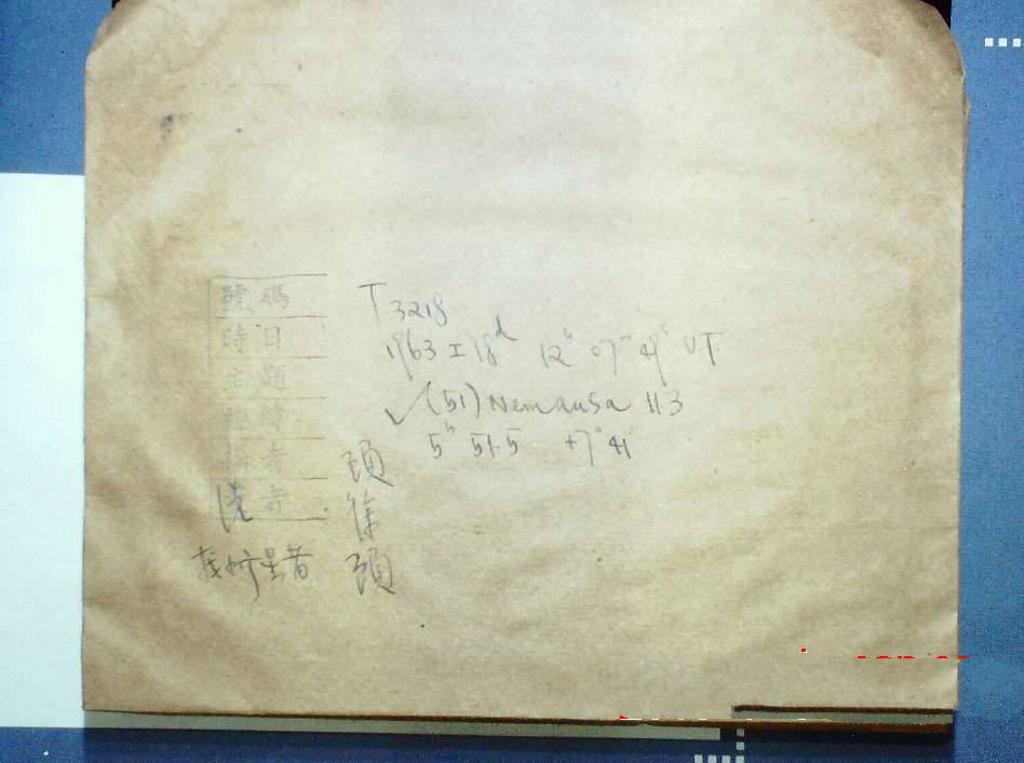 號碼 T 3218
時日 1963 I 18ᵈ 12ʰ 07ᵐ 49ˢ U.T.
主題 ✓(51) Nemausa 113
5ʰ 51.5 +7° 41'
者
洗者 徐
找行星者